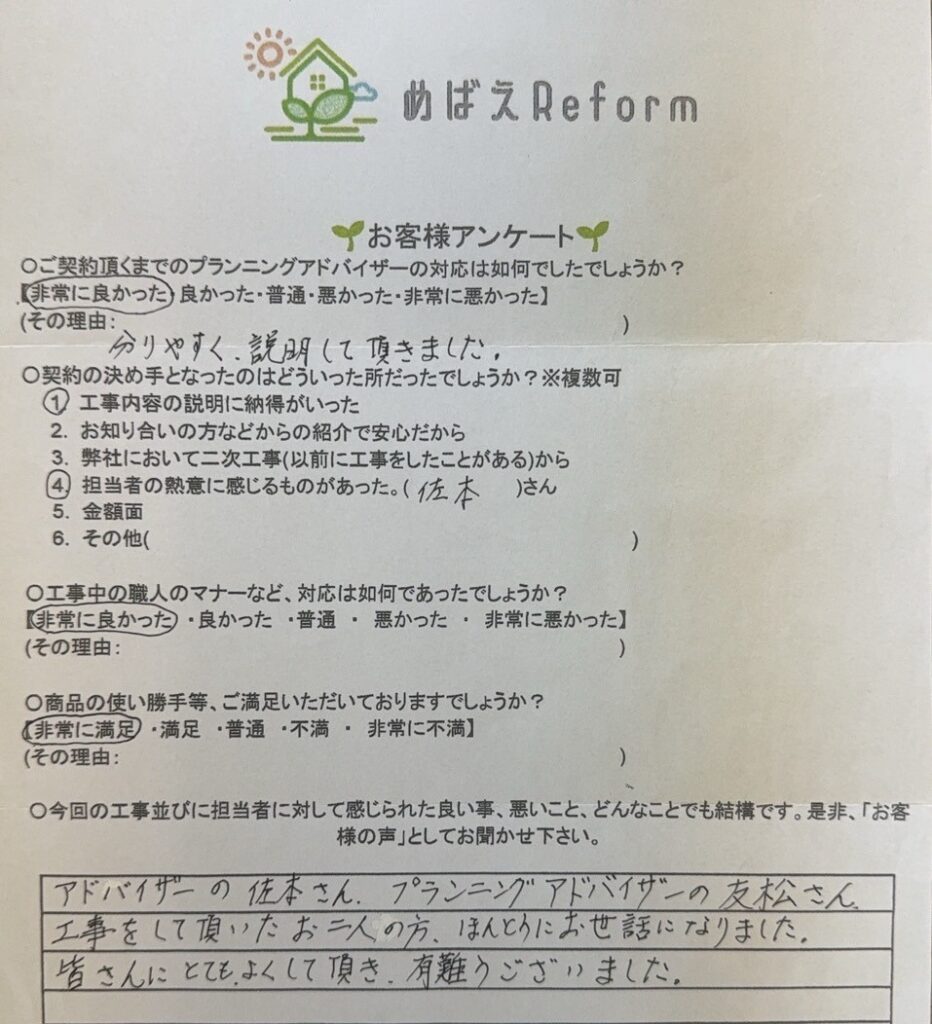 めばえReform
お客様アンケート
○ご契約頂くまでのプランニングアドバイザーの対応は如何でしたでしょうか？
【非常に良かった・良かった・普通・悪かった・非常に悪かった】
(その理由: )
分りやすく、説明して頂きました。
○契約の決め手となったのはどういった所だったでしょうか？※複数可
1. 工事内容の説明に納得がいった
2. お知り合いの方などからの紹介で安心だから
3. 弊社において二次工事(以前に工事をしたことがある)から
4. 担当者の熱意に感じるものがあった。( 佐本 )さん
5. 金額面
6. その他( )
○工事中の職人のマナーなど、対応は如何であったでしょうか？
【非常に良かった ・良かった ・普通 ・ 悪かった ・ 非常に悪かった】
(その理由: )
○商品の使い勝手等、ご満足いただいておりますでしょうか？
【非常に満足 ・満足 ・普通 ・不満 ・ 非常に不満】
(その理由: )
○今回の工事並びに担当者に対して感じられた良い事、悪いこと、どんなことでも結構です。是非、「お客
様の声」としてお聞かせ下さい。
アドバイザーの佐本さん、プランニングアドバイザーの友松さん、
工事をして頂いたお二人の方、ほんとうにお世話になりました。
皆さんにとてもよくして頂き、有難うございました。